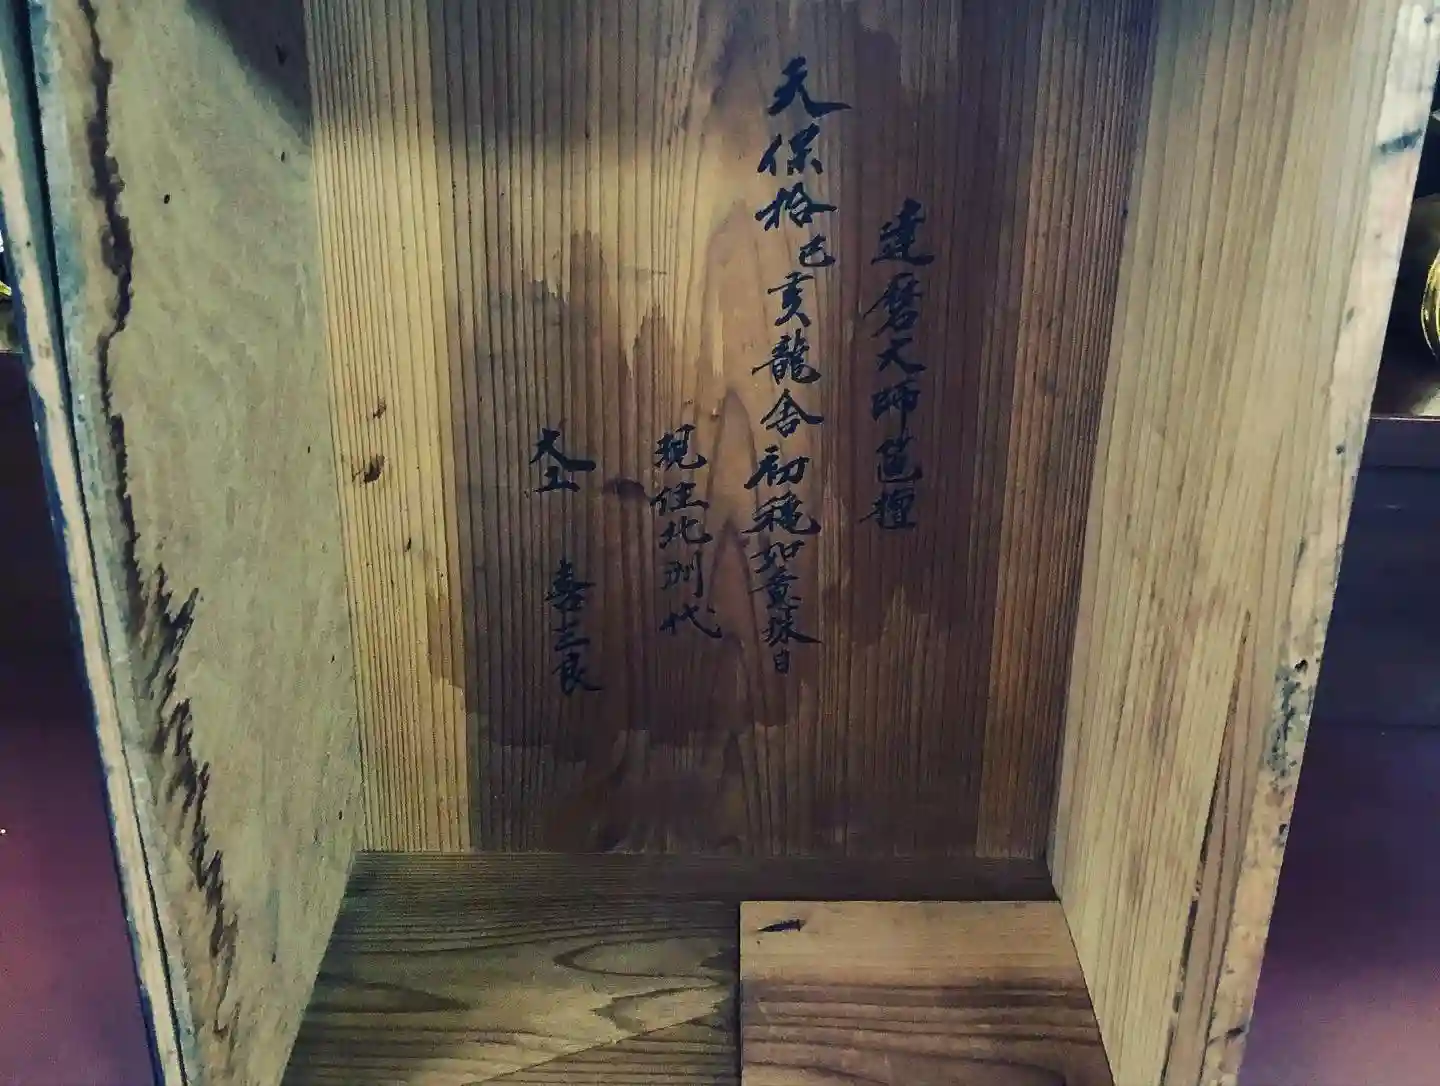 達磨大師箆檀
天保拾己亥龍舎初穐如意珠日
現住北洲代
大工 喜三良